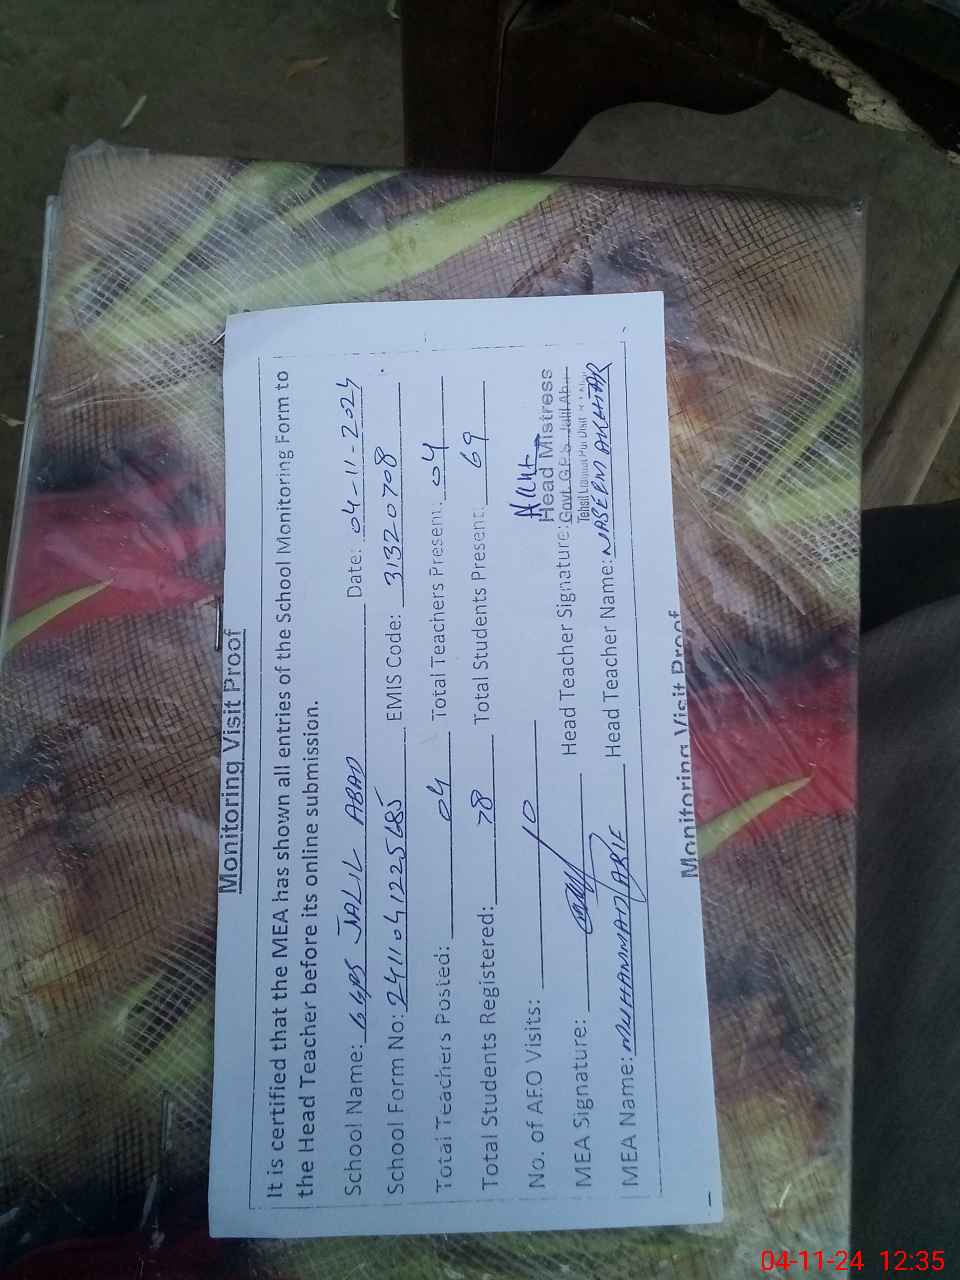 Monitoring Visit Proof
It is certified that the MEA has shown all entries of the School Monitoring Form to
the Head Teacher before its online submission.
School Name: GGPS JALIL ABAD Date: 04-11-2024
School Form No: 2411041225685 EMIS Code: 31320708
Total Teachers Posted: 04 Total Teachers Present: 04
Total Students Registered: 78 Total Students Present: 69
No. of AEO Visits: 10
MEA Signature: Head Teacher Signature:
Head Mistress
Govt. G.P.S. Jalil Ab
Tehsil Liaquat Pur Distt
MEA Name: MUHAMMAD ARIF Head Teacher Name: NASEEM AKHTAR
Monitoring Visit Proof
04-11-24 12:35